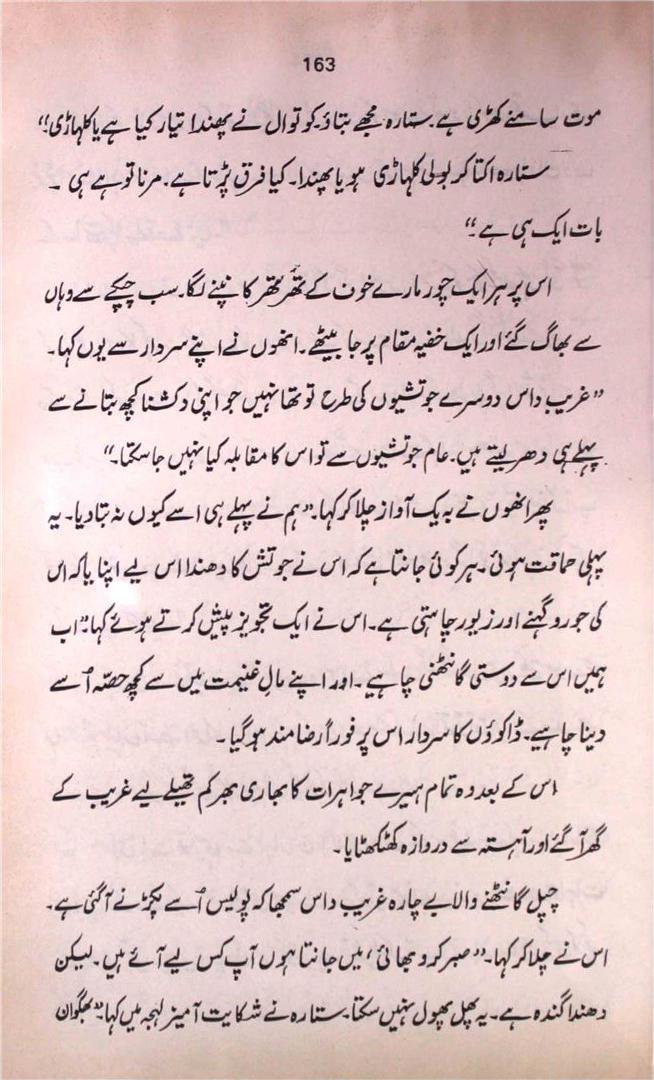 163
موت سامنے کھڑی ہے۔ ستارہ مجھے بتاؤ۔ کوتوال نے پھندا تیار کیا ہے یا کلہاڑی“
ستارہ اکتا کر بولی کلہاڑی ہو یا پھندا۔ کیا فرق پڑتا ہے۔ مرنا تو ہے ہی ۔
بات ایک ہی ہے“
اس پر ہر ایک چور مارے خون کے تھر تھر کانپنے لگا۔ سب چپکے سے وہاں
سے بھاگ گئے اور ایک خفیہ مقام پر جا بیٹھے۔ انھوں نے اپنے سردار سے یوں کہا۔
”غریب داس دوسرے جوتشیوں کی طرح تو تھا نہیں جو اپنی دکشنا کچھ بتانے سے
پہلے ہی دھر لیتے ہیں۔ عام جوتشیوں سے تو اس کا مقابلہ کیا نہیں جا سکتا۔“
پھر انھوں نے بہ یک آواز چلا کر کہا۔ ”ہم نے پہلے ہی اسے کیوں نہ بتا دیا۔ یہ
پہلی حماقت ہوئی۔ ہر کوئی جانتا ہے کہ اس نے جوتش کا دھندا اس لیے اپنا یا کہ اس
کی جورو گہنے اور زیور چاہتی ہے۔ اس نے ایک تجویز پیش کرتے ہوئے کہا۔ ”اب
ہمیں اس سے دوستی گانٹھنی چاہیے۔ اور اپنے مالِ غنیمت میں سے کچھ حصّہ اُسے
دینا چاہیے۔ ڈاکوؤں کا سردار اس پر فوراً رضامند ہو گیا ۔
اس کے بعد وہ تمام ہیرے جواہرات کا بھاری بھر کم تھیلے لیے غریب کے
گھر آ گئے اور آہستہ سے دروازہ کھٹکھٹایا ۔
چپل گانٹھنے والا بے چارہ غریب داس سمجھا کہ پولیس اُسے پکڑنے آ گئی ہے۔
اس نے چلا کر کہا۔ ”صبر کرو بھائی، میں جانتا ہوں آپ کس لیے آئے ہیں۔ لیکن
دھندا گندہ ہے۔ یہ پھل پھول نہیں سکتا۔ ستارہ نے شکایت آمیز لہجہ میں کہا۔ ”بھگوان